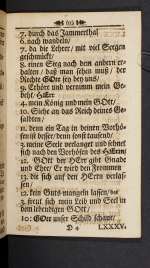 7. durch das Jammerthal
6. nach wandeln/
7. da die Lehrer/ mit viel Segen
geschmückt/
8. einen Sieg nach dem andern er-
halten/ daß man sehen muß/ der
Rechte GOtt sey bey uns/
9. Erhöre und vernimm mein Ge-
beth/ HErr
4. mein König und mein GOtt/
10. Siehe an das Reich deines Ge-
salbten/
11. denn ein Tag in deinen Vorhö-
fen ist besser/ denn sonst tausend/
3. meine Seele verlanget und sehnet
sich nach den Vorhöfen des HErrn/
12. GOtt der HErr gibt Gnade
und Ehre/ Er wird den Frommen
13. die sich auf der HErrn verlas-
sen/
12. kein Guts mangeln lassen/ das
freuet sich mein Leib und Seel in
dem lebendigen GOtt/
10: GOtt unser Schild schaue/
D 4
LXXXV.